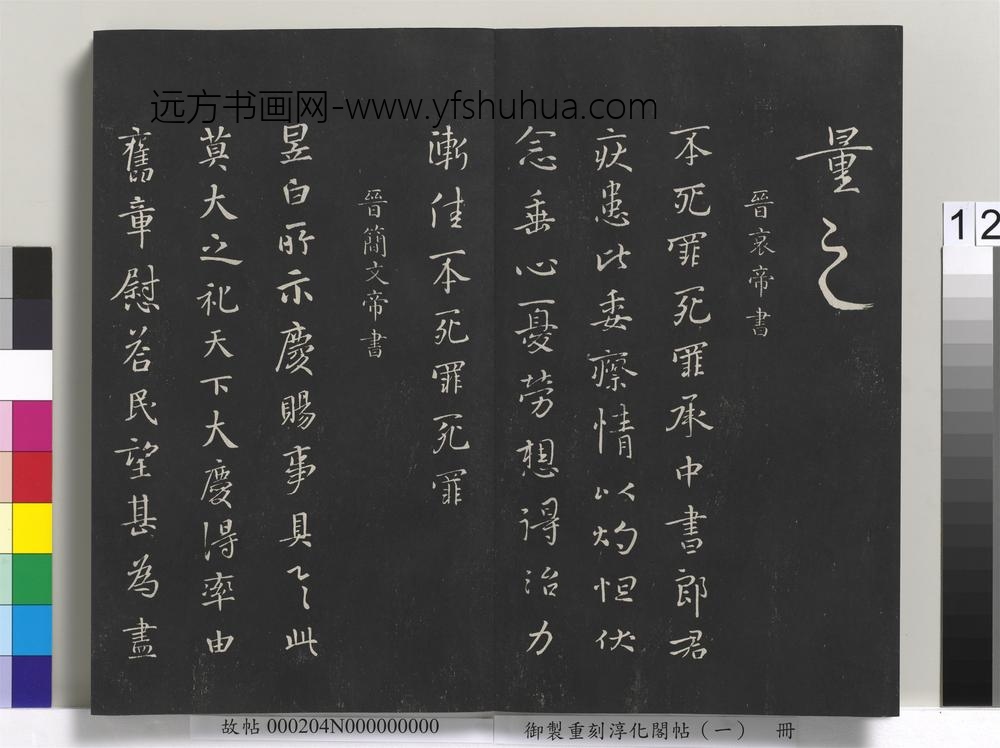 远方书画网-www.yfshuhua.com
量之
晉哀帝書
丕死罪死罪承中書郎君
疾患比委瘵情以灼怛伏
念垂心憂勞想得治力
漸佳丕死罪死罪
晉簡文帝書
昱白所示慶賜事具此
莫大之祀天下大慶得率由
舊章慰荅民望甚為盡
1 2
故帖 000204N000000000
御製重刻淳化閣帖（一） 冊